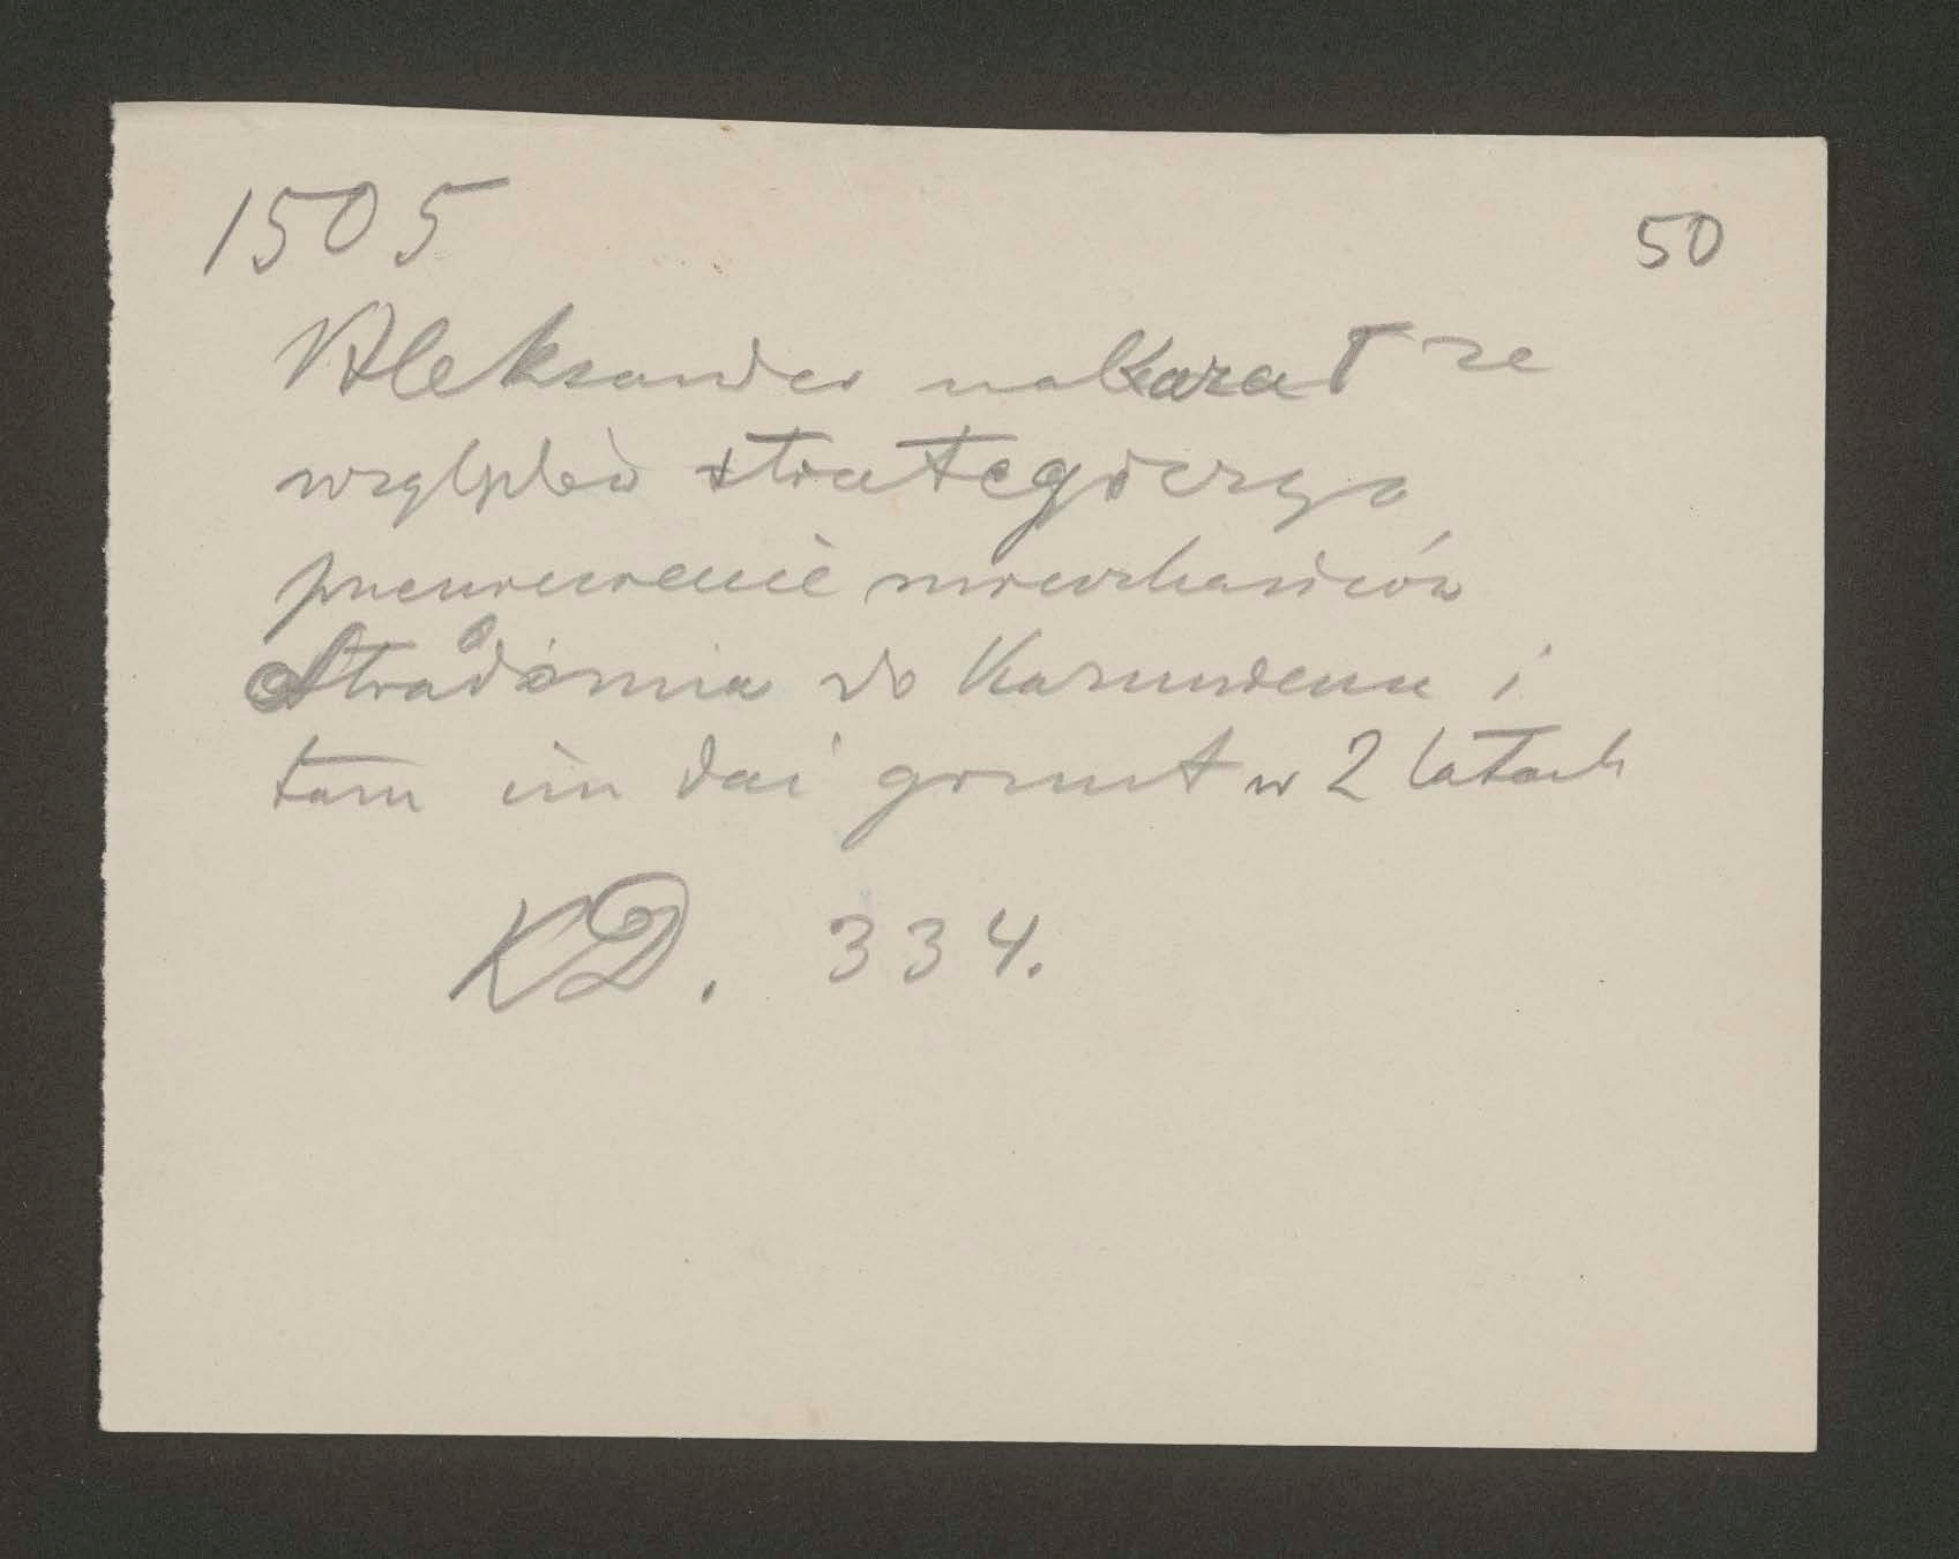 1505
50
Aleksander nakazał ze
względów strategiczn.
przeniesienie mieszkańców
Stradomia do Kazimierza i
tam im dać grunt w 2 latach
KD. 334.